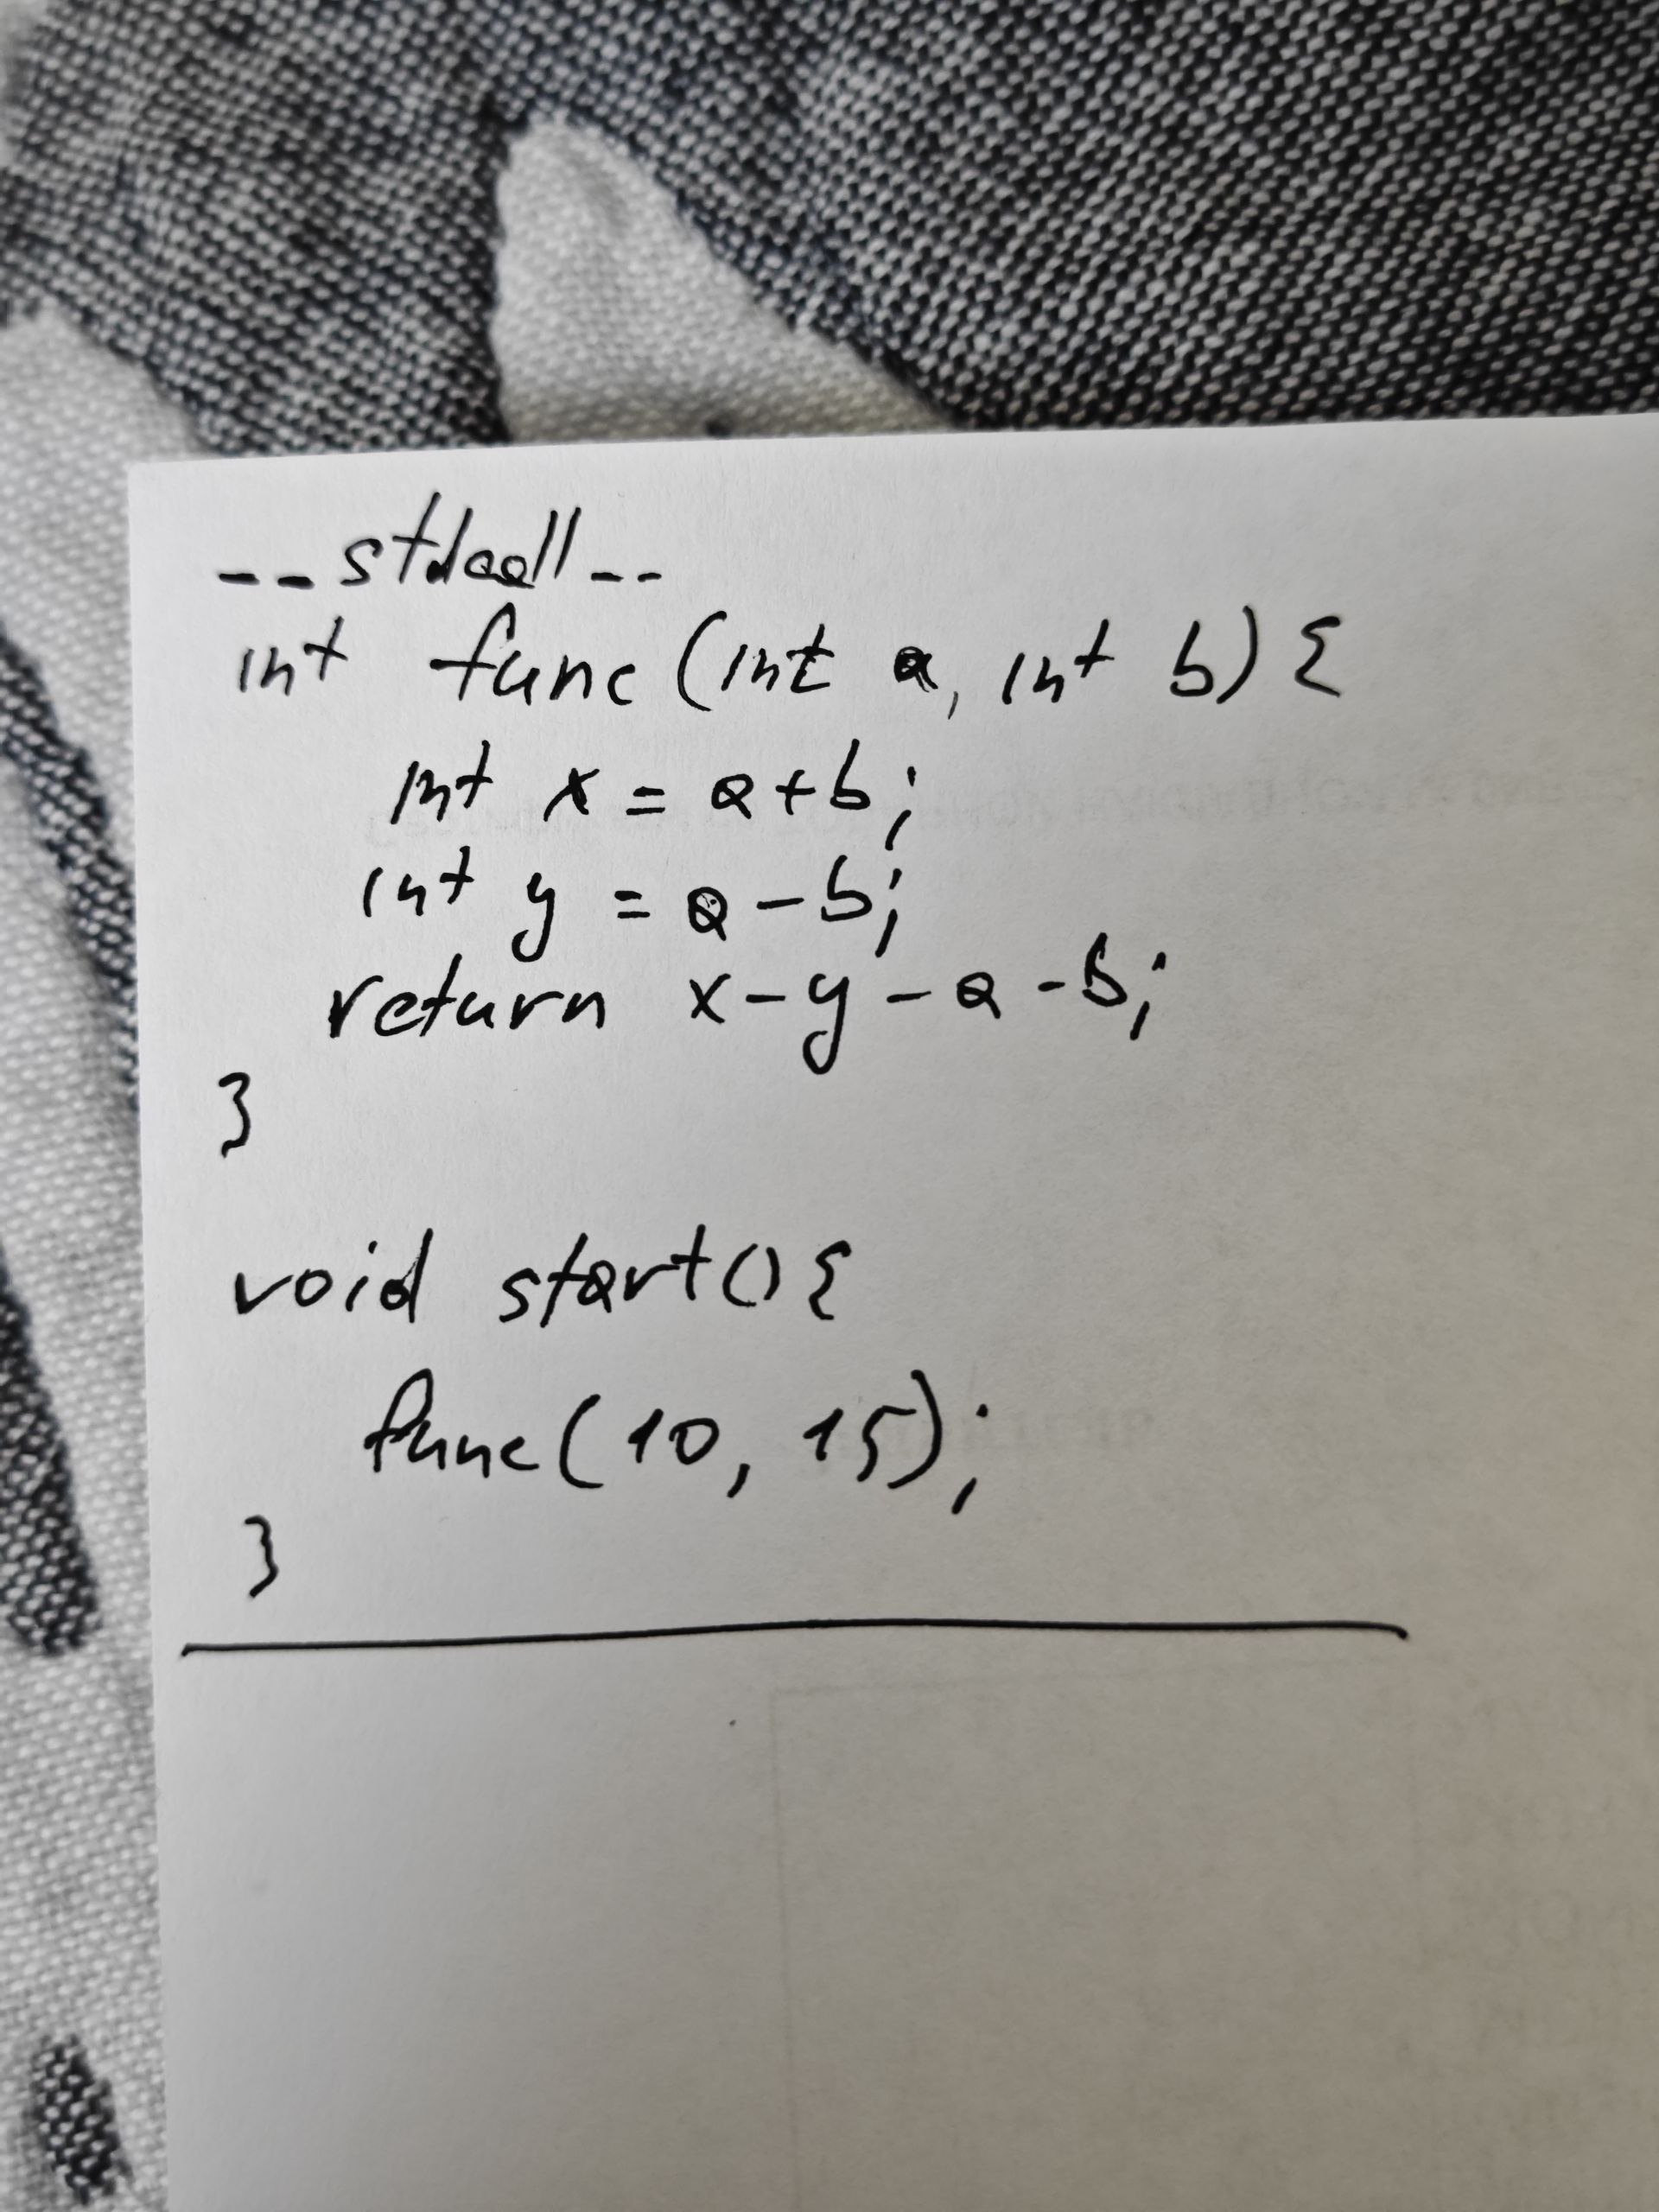 __stdcall__
int func (int a, int b) {
int x = a+b;
int y = a-b;
return x-y-a-b;
}
void start() {
func(10, 15);
}